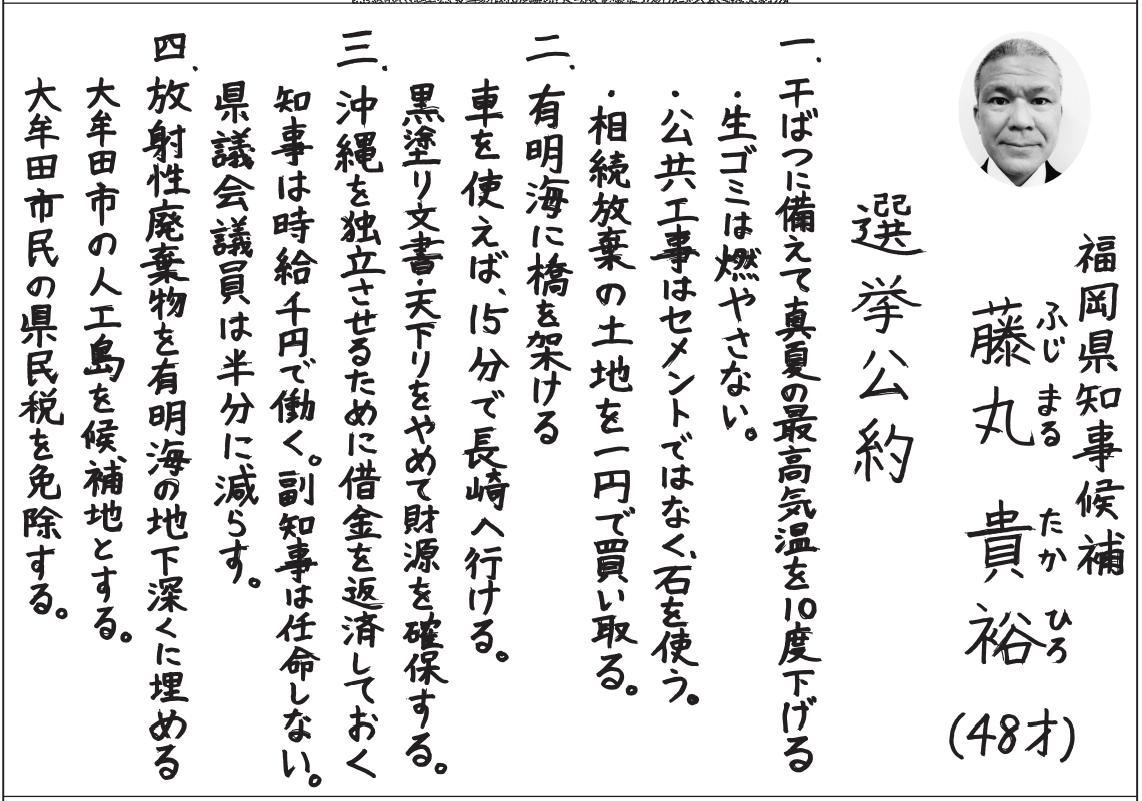 福岡県知事候補
ふじ まる たか ひろ
藤丸 貴裕 (48才)
選挙公約
一. 干ばつに備えて真夏の最高気温を10度下げる
・生ゴミは燃やさない。
・公共工事はセメントではなく、石を使う。
・相続放棄の土地を一円で買い取る。
二. 有明海に橋を架ける
車を使えば、15分で長崎へ行ける。
黒塗り文書・天下りをやめて財源を確保する。
三. 沖縄を独立させるために借金を返済しておく
知事は時給千円で働く。副知事は任命しない。
県議会議員は半分に減らす。
四. 放射性廃棄物を有明海の地下深くに埋める
大牟田市の人工島を候補地とする。
大牟田市民の県民税を免除する。